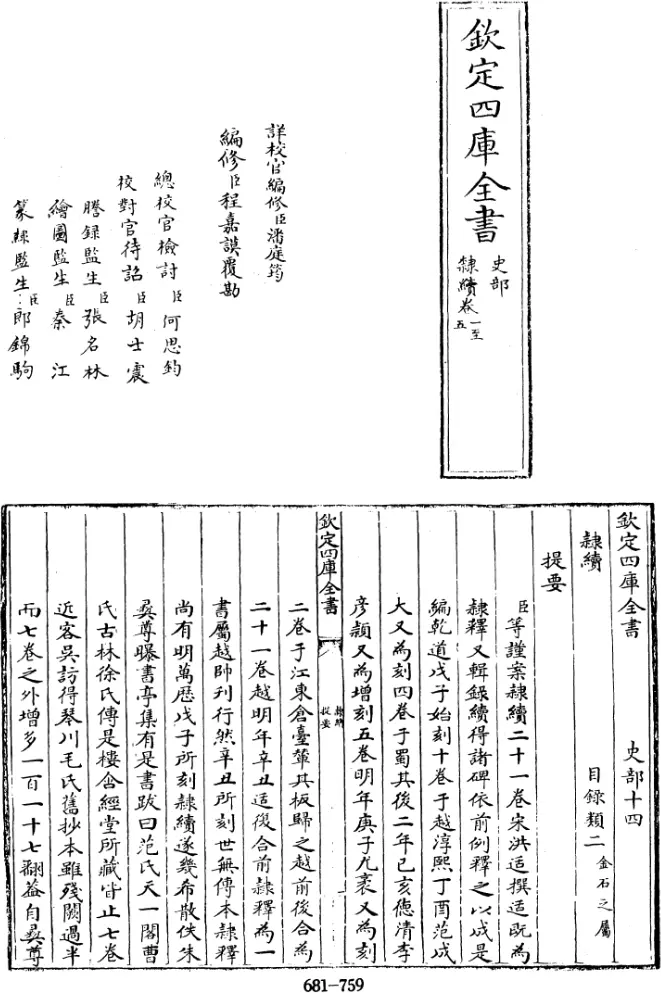 欽定四庫全書
史部
隸續卷一至五
詳校官編修臣潘庭筠
編修臣程嘉謨覆勘
總校官檢討臣何思鈞
校對官待詔臣胡士震
謄録監生臣張名林
繪圖監生臣秦江
篆隸監生臣郎錦騊
欽定四庫全書
史部十四
隸續
目録類二金石之屬
提要
臣等謹案隸續二十一卷宋洪适撰适既為
隸釋又輯録續得諸碑依前例釋之以成是
編乾道戊子始刻十卷于越淳熙丁酉范成
大又為刻四卷于蜀其後二年己亥徳清李
彦頴又為増刻五卷明年庚子尤袤又為刻
欽定四庫全書
隸續
提要
二卷于江東倉臺輦其板歸之越前後合為
二十一卷越明年辛丑适復合前隸釋為一
書屬越帥刊行然辛丑所刻世無傳本隸釋
尚有明萬歴戊子所刻隸續遂幾希散佚朱
彛尊曝書亭集有是書跋曰范氏天一閣曹
氏古林徐氏傳是樓含經堂所藏皆止七卷
近客吳訪得琴川毛氏舊抄本雖殘闕過半
而七卷之外増多一百一十七翻蓋自彛尊
681-759